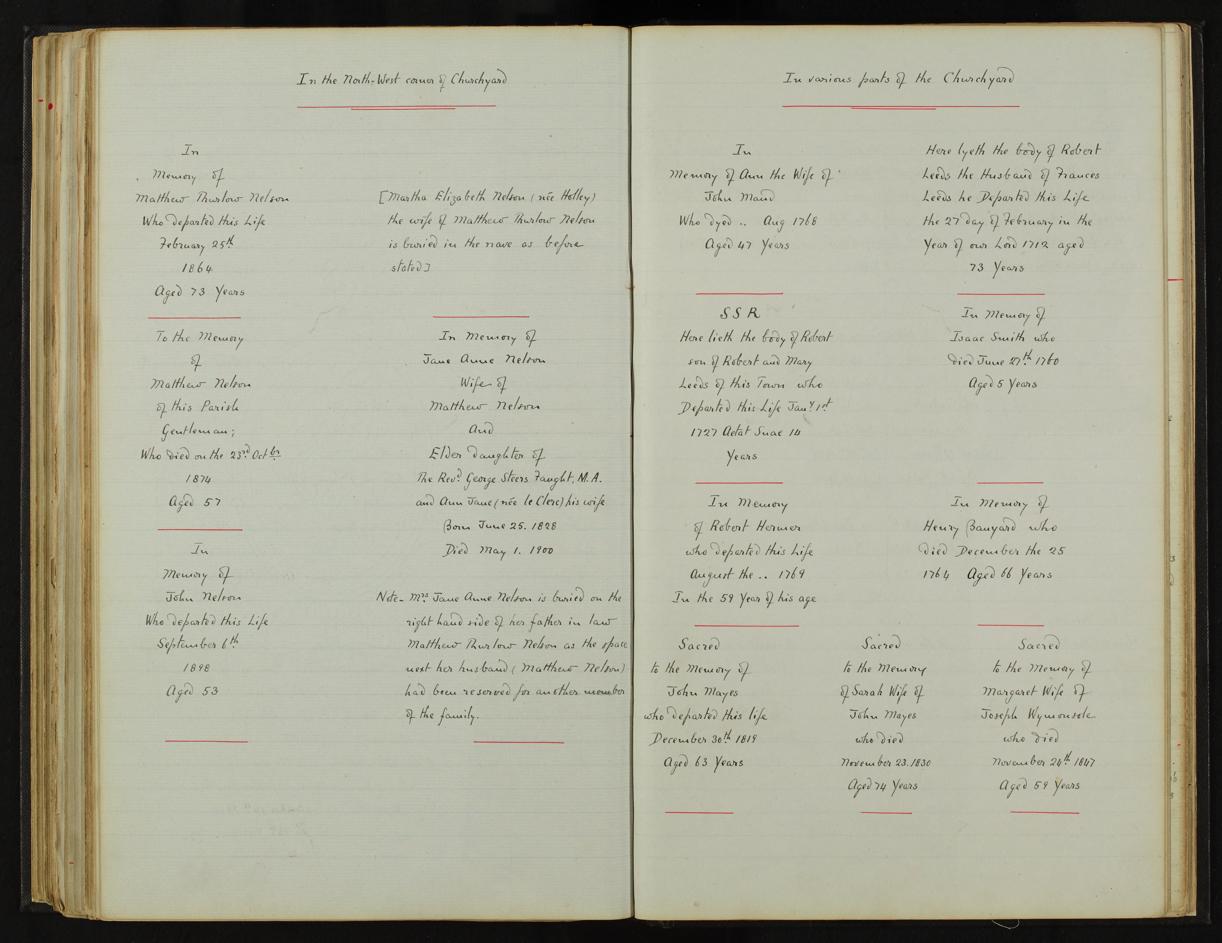 In the North-West corner of Churchyard
In
Memory of
Matthew Thurlow Nelson
Who departed this Life
February 25th
1864
Aged 73 Years
[Martha Elizabeth Nelson (née Holley)
the wife of Matthew Thurlow Nelson
is buried in the nave as before
stated]
To the Memory
of
Matthew Nelson
of this Parish
Gentleman;
Who died on the 23rd Octbr
1874
Aged 57
In Memory of
Jane Anne Nelson
Wife of
Matthew Nelson
And
Elder daughter of
The Revd George Steers Faught, M.A.
and Ann Jane (née le Clerc) his wife
Born June 25. 1828
Died May 1. 1900
In
Memory of
John Nelson
Who departed this Life
September 6th
1898
Aged 53
Note - Mrs Jane Anne Nelson is buried on the
right hand side of her father in law
Matthew Thurlow Nelson as the space
next her husband (Matthew Nelson)
had been reserved for another member
of the family.
In various parts of the Churchyard
In
Memory of Ann the Wife of
John Mand
Who dyed .. Aug 1768
Aged 47 Years
Here lyeth the body of Robert
Leeds the Husband of Frances
Leeds he Departed this Life
the 27 day of February in the
Year of our Lord 1712 aged
73 Years
SSR
Here lieth the body of Robert
son of Robert and Mary
Leeds of this Town who
Departed this Life Jany 1st
1727 Aetat Suae 14
Years
In Memory of
Isaac Smith who
died June 27th 1760
Aged 5 Years
In Memory
of Robert Hormer
who departed this Life
August the .. 1769
In the 59 Year of his age
In Memory of
Henry Banyard who
died December the 25
1764 Aged 66 Years
Sacred
to the Memory of
John Mayes
who departed this life
December 30th 1819
Aged 63 Years
Sacred
to the Memory
of Sarah Wife of
John Mayes
who died
November 23. 1830
Aged 74 Years
Sacred
to the Memory of
Margaret Wife of
Joseph Wymonsole
who died
November 24th 1847
Aged 59 Years